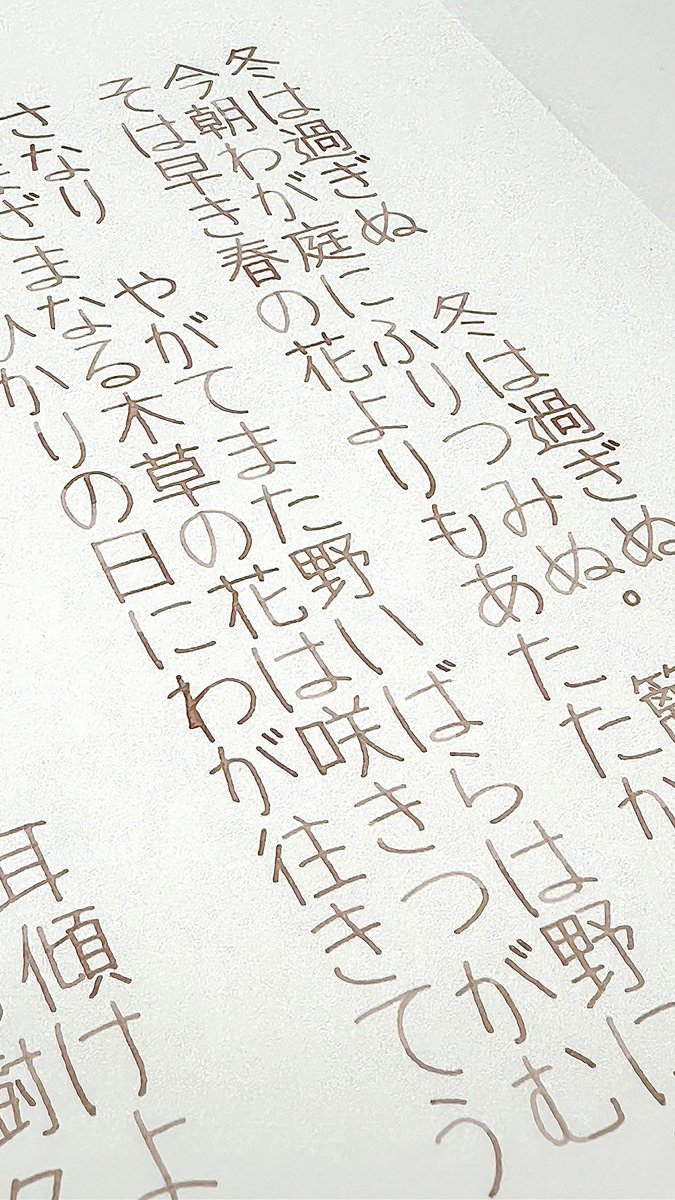 冬は過ぎぬ　冬は過ぎぬ
今朝わが庭にふりつみぬ。籬
そは早き春の花よりもあたたか
さなり　やがてまた野いばらは野に
ざまなる木草の花は咲きつがむ
ひかりの日にわが往きてう
耳傾けよ